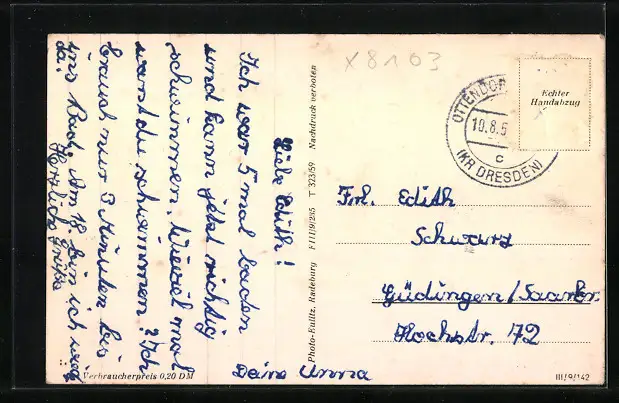 x 8103
Liebe Edith!
Ich war 5 mal baden
und kann jetzt richtig
schwimmen. Wieviel mal
warst du schwimmen? Ich
brauch nur 3 Minuten bis
ins Bad. Am 18. bin ich wieder
da.
Herzliche Grüße
Deine Unna
Verbraucherpreis 0,20 DM
Photo-Kulitz, Radeburg F 111/9/295 T 323/59 Nachdruck verboten
OTTENDORF
10.8.5
c
(KR DRESDEN)
Echter
Handabzug
Frl. Edith
Schwarz
Güdingen/Saarbr.
Hochstr. 72
III/9/142